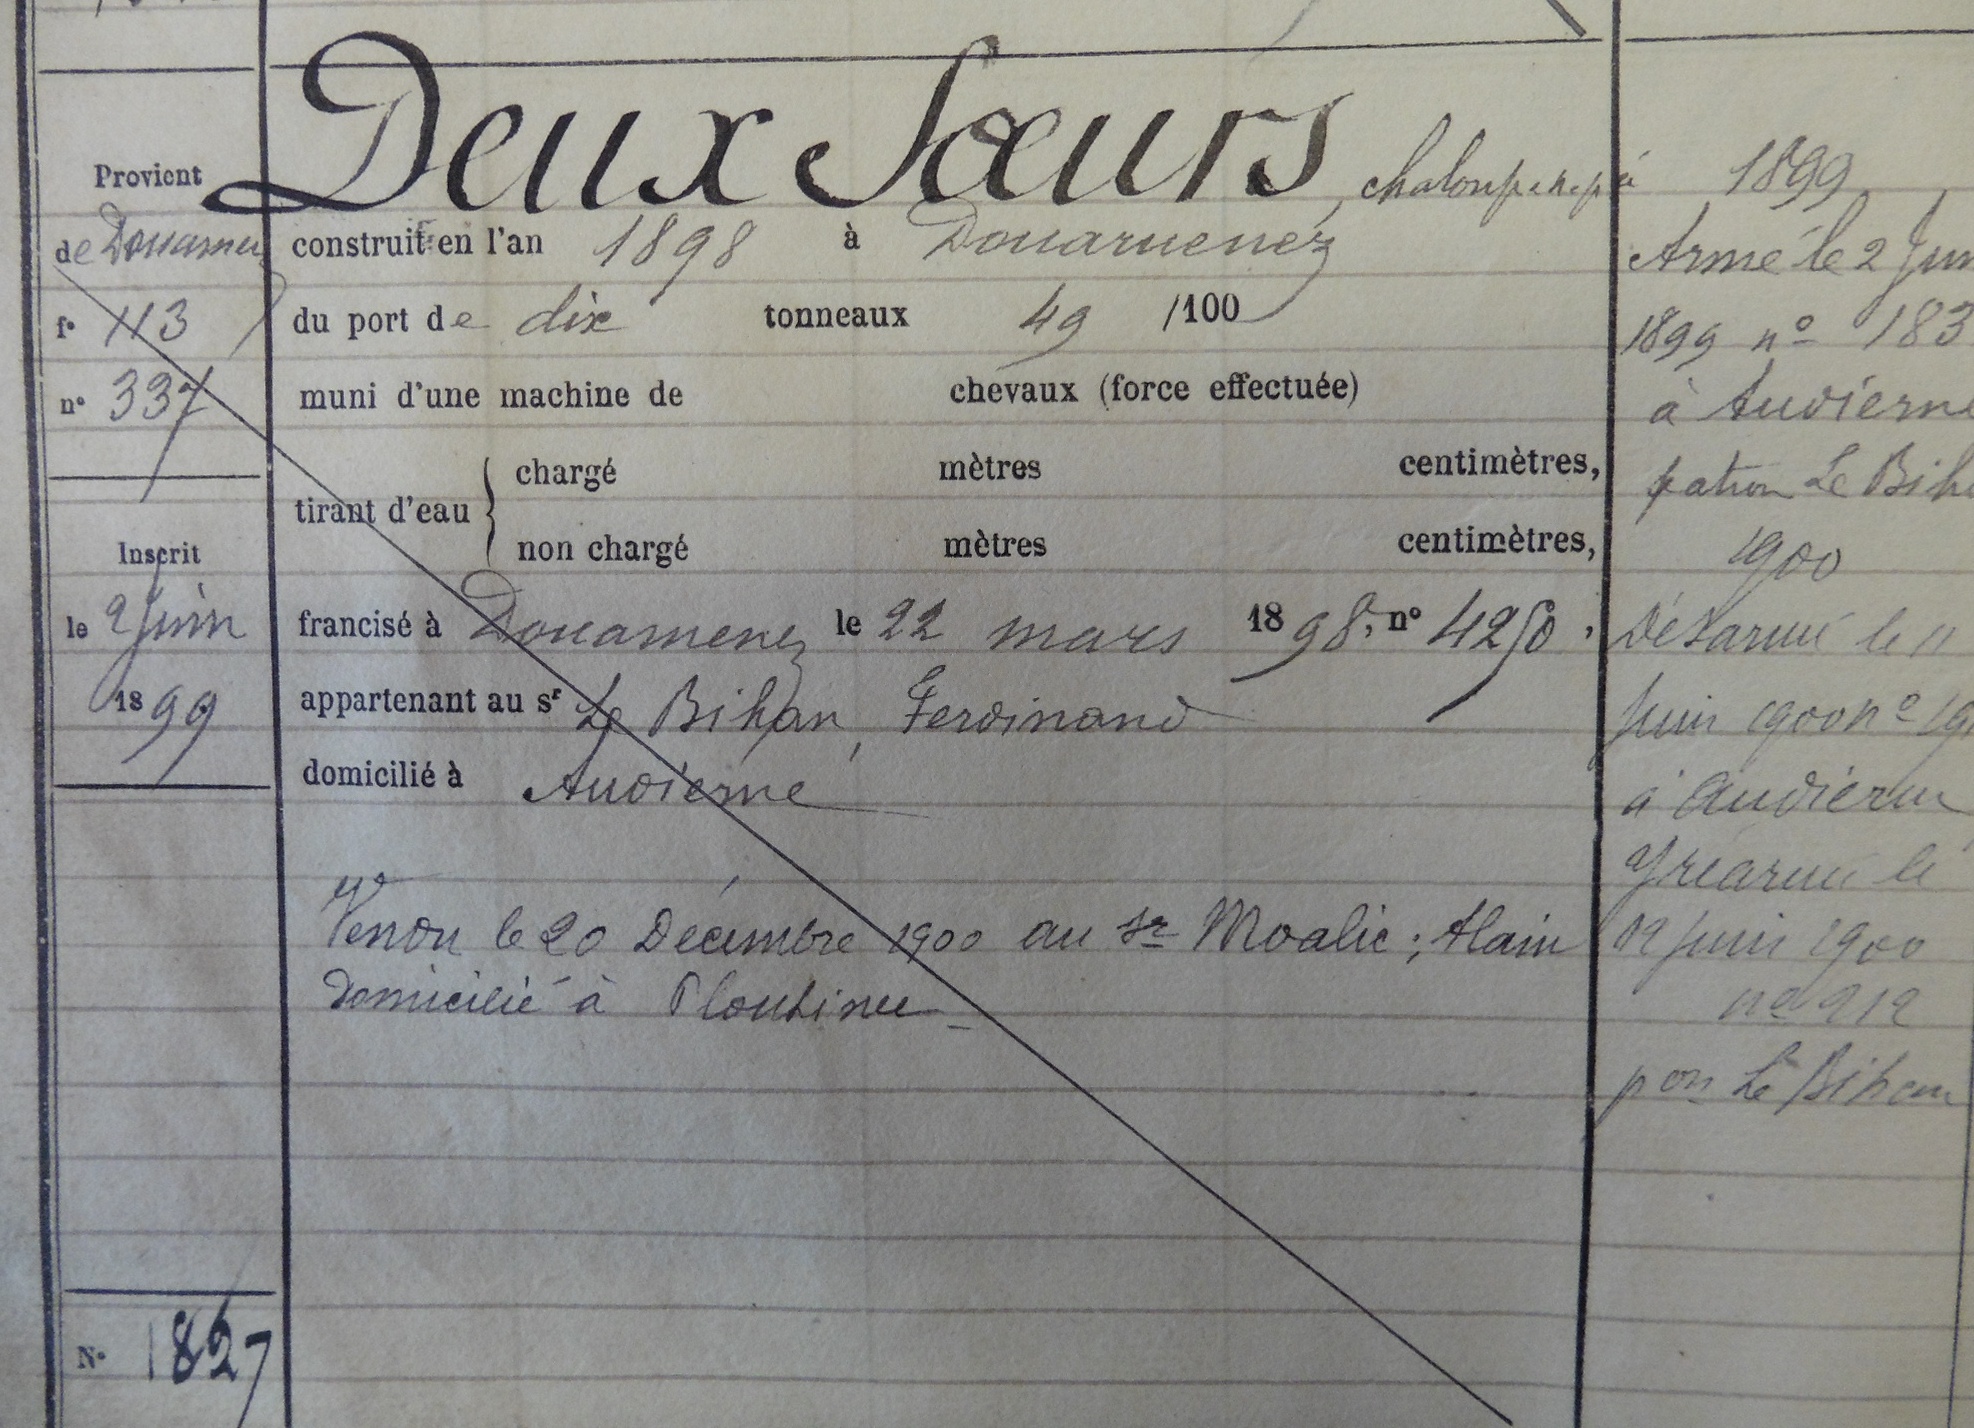 Deux Sœurs chaloupe n.p à
Provient
de Douarnenez
fº 113
nº 337
Inscrit
le 2 Juin
1899
Nº 1827
construit en l'an 1898 à Douarnenez
du port de dix tonneaux 49 /100
muni d'une machine de chevaux (force effectuée)
tirant d'eau { chargé mètres centimètres,
non chargé mètres centimètres,
francisé à Douarnenez le 22 mars 1898, nº 4250,
appartenant au sr Le Bihan, Ferdinand
domicilié à Audierne
Vendu le 20 Décembre 1900 au sr Moalic; Alain
domicilié à Plouhinec
1899
Armé le 2 Juin
1899 nº 183
à Audierne
patron Le Biha
1900
Désarmé le 11
Juin 1900 nº 19
à Audierne
Y réarmé le
12 Juin 1900
nº 212
pon Le Bihan